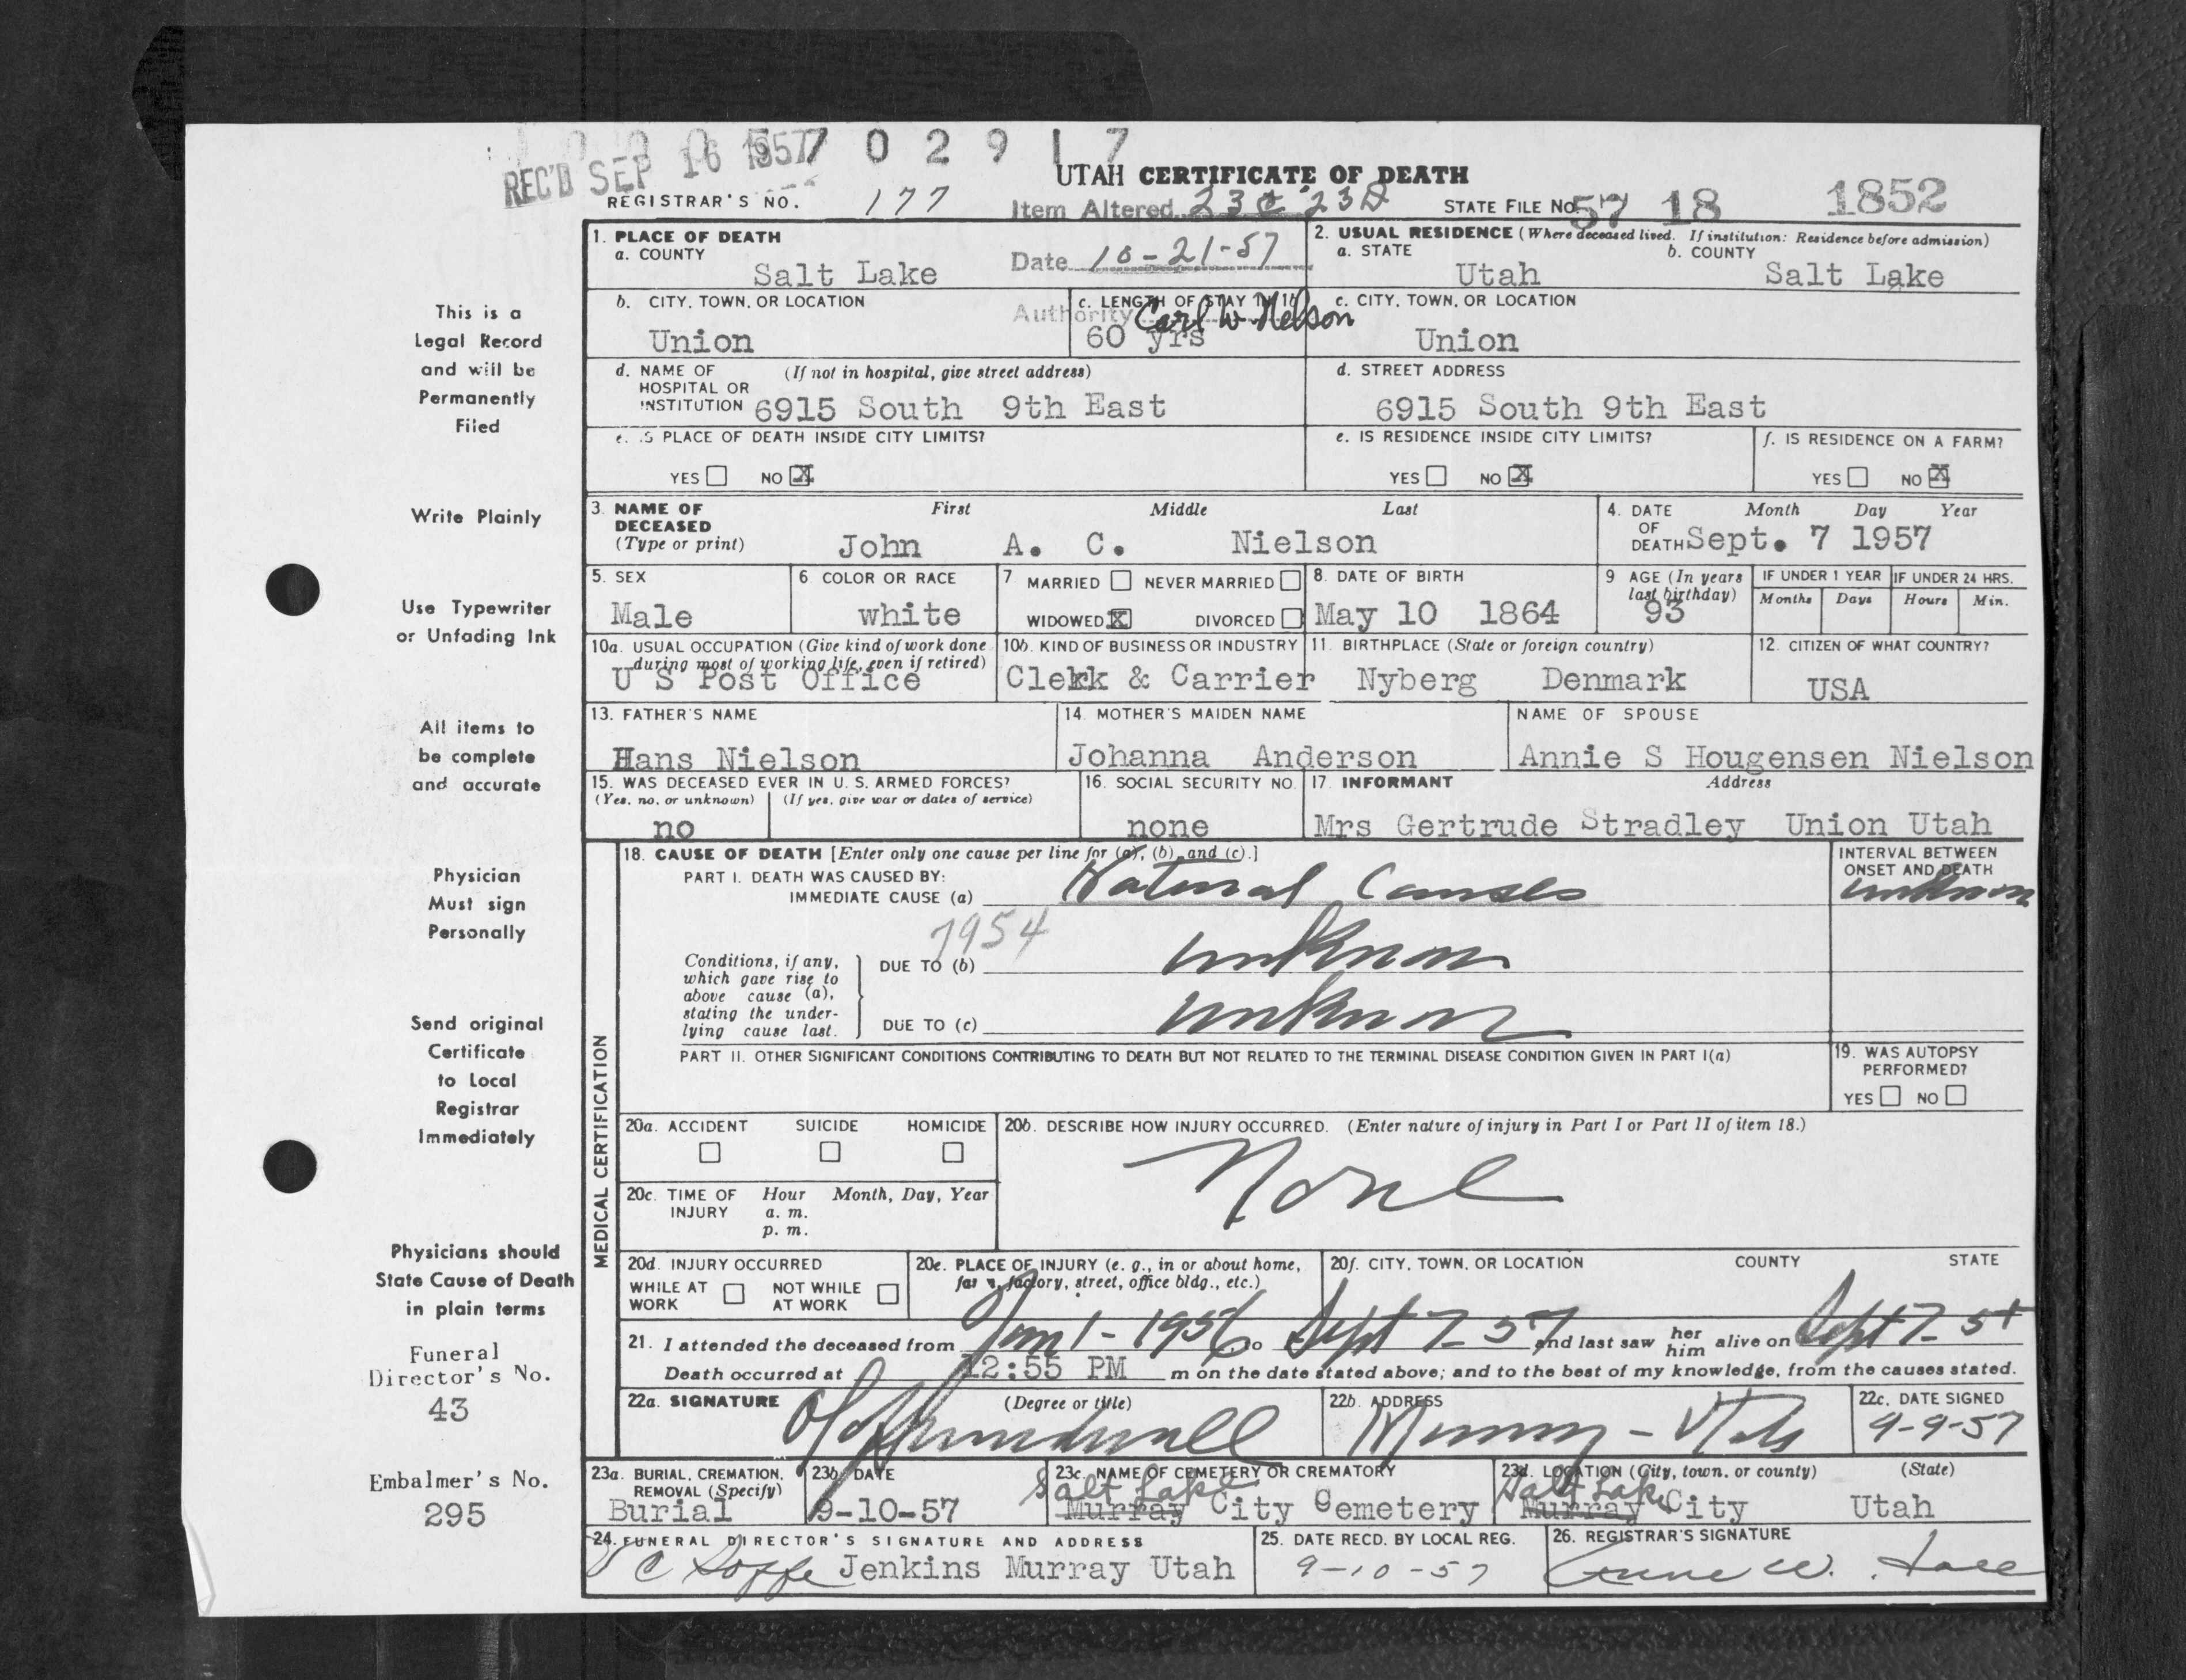 57 0 2 9 1 7
REC'D SEP 16 1957
UTAH CERTIFICATE OF DEATH
REGISTRAR'S NO. 177
Item Altered 23c 23D
STATE FILE NO. 57 18 1852
1. PLACE OF DEATH
a. COUNTY
Salt Lake
Date 10-21-57
2. USUAL RESIDENCE (Where deceased lived. If institution: Residence before admission)
a. STATE
Utah
b. COUNTY
Salt Lake
b. CITY, TOWN, OR LOCATION
Union
Authority Carl W Nelson
c. LENGTH OF STAY IN 1b
60 yrs
c. CITY, TOWN, OR LOCATION
Union
d. NAME OF HOSPITAL OR INSTITUTION
(If not in hospital, give street address)
6915 South 9th East
d. STREET ADDRESS
6915 South 9th East
e. IS PLACE OF DEATH INSIDE CITY LIMITS?
YES NO X
e. IS RESIDENCE INSIDE CITY LIMITS?
YES NO X
f. IS RESIDENCE ON A FARM?
YES NO X
3. NAME OF DECEASED
(Type or print)
First Middle Last
John A. C. Nielson
4. DATE OF DEATH
Month Day Year
Sept. 7 1957
5. SEX
Male
6 COLOR OR RACE
white
7 MARRIED NEVER MARRIED
WIDOWED X DIVORCED
8. DATE OF BIRTH
May 10 1864
9 AGE (In years last birthday)
93
IF UNDER 1 YEAR
Months Days
IF UNDER 24 HRS.
Hours Min.
10a. USUAL OCCUPATION (Give kind of work done during most of working life, even if retired)
U S Post Office
10b. KIND OF BUSINESS OR INDUSTRY
Clerk & Carrier
11. BIRTHPLACE (State or foreign country)
Nyberg Denmark
12. CITIZEN OF WHAT COUNTRY?
USA
13. FATHER'S NAME
Hans Nielson
14. MOTHER'S MAIDEN NAME
Johanna Anderson
NAME OF SPOUSE
Annie S Hougensen Nielson
15. WAS DECEASED EVER IN U. S. ARMED FORCES?
(Yes, no, or unknown) (If yes, give war or dates of service)
no
16. SOCIAL SECURITY NO.
none
17. INFORMANT Address
Mrs Gertrude Stradley Union Utah
MEDICAL CERTIFICATION
18. CAUSE OF DEATH [Enter only one cause per line for (a), (b), and (c).]
PART I. DEATH WAS CAUSED BY:
IMMEDIATE CAUSE (a) Natural Causes
INTERVAL BETWEEN ONSET AND DEATH
unknown
7954
Conditions, if any, which gave rise to above cause (a), stating the underlying cause last.
DUE TO (b) unknown
DUE TO (c) unknown
PART II. OTHER SIGNIFICANT CONDITIONS CONTRIBUTING TO DEATH BUT NOT RELATED TO THE TERMINAL DISEASE CONDITION GIVEN IN PART I(a)
19. WAS AUTOPSY PERFORMED?
YES NO
20a. ACCIDENT SUICIDE HOMICIDE
20b. DESCRIBE HOW INJURY OCCURRED. (Enter nature of injury in Part I or Part II of item 18.)
None
20c. TIME OF INJURY
Hour Month, Day, Year
a. m.
p. m.
20d. INJURY OCCURRED
WHILE AT WORK NOT WHILE AT WORK
20e. PLACE OF INJURY (e. g., in or about home, farm, factory, street, office bldg., etc.)
20f. CITY, TOWN, OR LOCATION COUNTY STATE
21. I attended the deceased from Jan 1 - 1956 to Sept 7 - 57 and last saw her him alive on Sept 7 - 57
Death occurred at 12:55 PM m on the date stated above; and to the best of my knowledge, from the causes stated.
22a. SIGNATURE (Degree or title)
22b. ADDRESS
Murray - Utah
22c. DATE SIGNED
9-9-57
23a. BURIAL, CREMATION, REMOVAL (Specify)
Burial
23b. DATE
9-10-57
23c. NAME OF CEMETERY OR CREMATORY
Salt Lake
Murray City Cemetery
23d. LOCATION (City, town, or county) (State)
Salt Lake
Murray City Utah
24. FUNERAL DIRECTOR'S SIGNATURE AND ADDRESS
Jenkins Murray Utah
25. DATE RECD. BY LOCAL REG.
9-10-57
26. REGISTRAR'S SIGNATURE
This is a
Legal Record
and will be
Permanently
Filed
Write Plainly
Use Typewriter
or Unfading Ink
All items to
be complete
and accurate
Physician
Must sign
Personally
Send original
Certificate
to Local
Registrar
Immediately
Physicians should
State Cause of Death
in plain terms
Funeral
Director's No.
43
Embalmer's No.
295